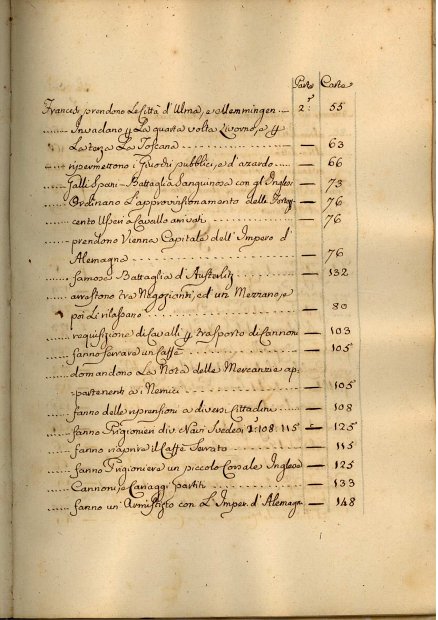 Parte Carte
Francesi prendono Le Città d'Ulma, e Memmingen .... 2: 55
...... Invadano p La quarta volta Livorno, e p
La terza La Toscana — 63
...... ripermettono i Giuochi pubblici, e d'azardo — 66
...... Galli Spani = Battaglia Sanguinosa con gl'Inglesi — 73
...... Ordinano L'approvvisionamento delle — 76
...... cento Usseri a Cavallo arrivati — 76
...... prendono Vienna Capitale dell'Impero d'
Alemagna — 76
...... famosa Battaglia d'Austerlitz — 132
...... arrestono tre Negozianti, ed un Mezzano, e
poi Li rilassano — 80
...... requisizione di Cavalli p trasporto di Cannoni — 103
...... fanno serrare un Caffè — 105
...... domandono La Nota delle Mercanzie ap=
partenenti a i Nemici — 105
...... fanno delle riprensioni a diversi Cittadini — 108
...... fanno Prigionieri div: Navi Svedesi 2: 108 115 — 125
...... fanno riaprire il Caffè Serrato — 115
...... fanno Prigioniere un piccolo Corsale Inglese — 125
...... Cannoni, e Cariaggi partiti — 133
...... fanno un Armistizio con L'Imper. d'Alemagna — 148